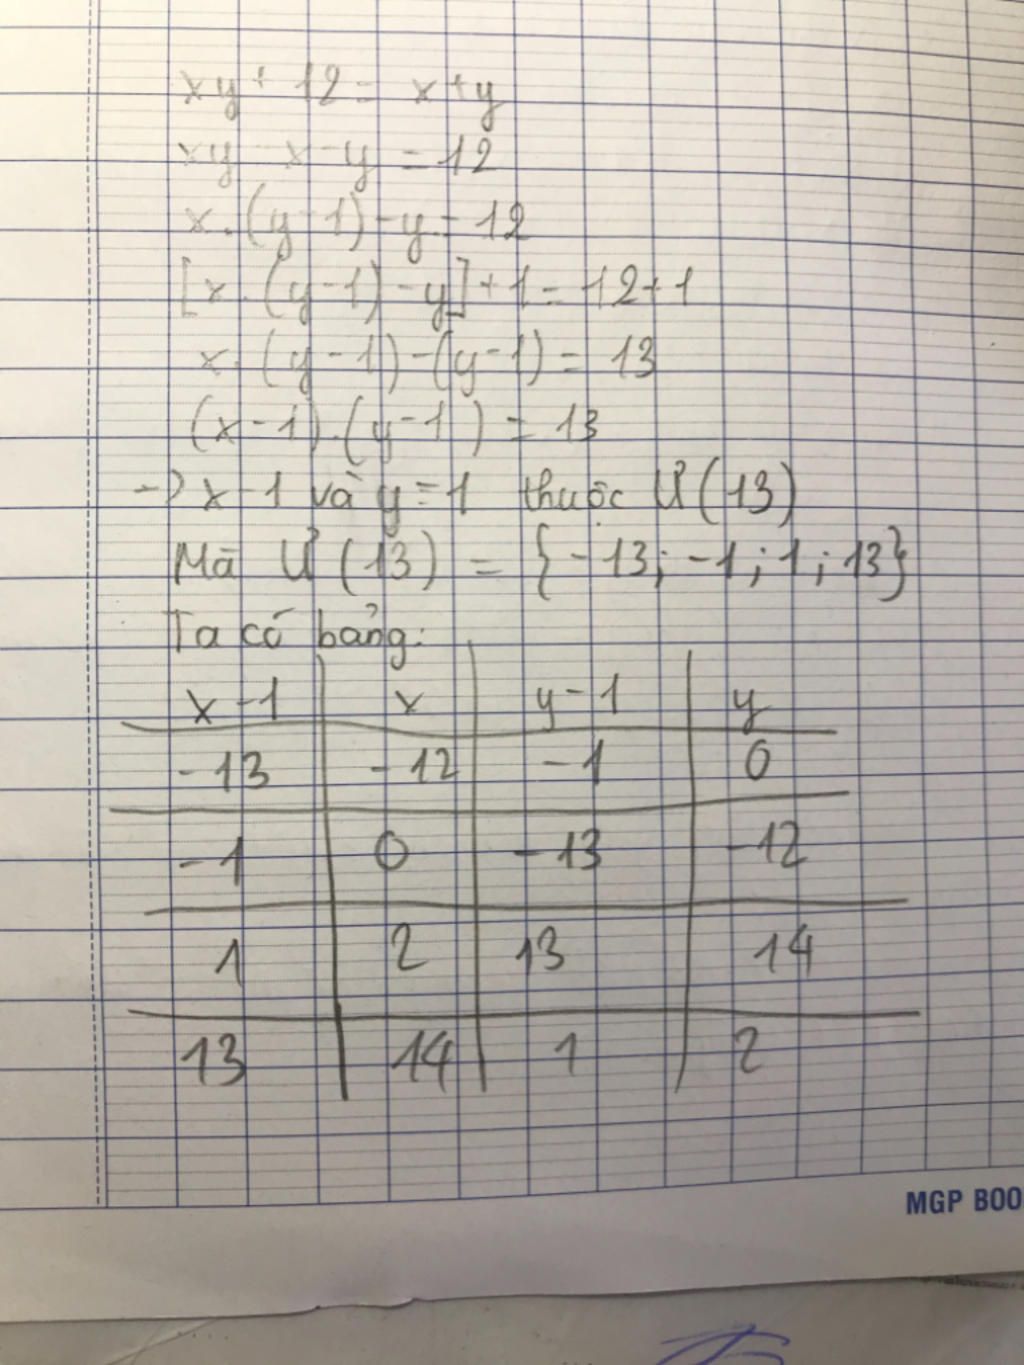 xy + 12 = x + y
xy - x - y = 12
x.(y-1) - y = 12
[x.(y-1) - y] + 1 = 12 + 1
x.(y-1) - (y-1) = 13
(x-1).(y-1) = 13
-> x-1 và y=1 thuộc Ư(13)
Mà Ư(13) = {-13; -1; 1; 13}
Ta có bảng:
x-1 x y-1 y
-13 -12 -1 0
-1 0 -13 -12
1 2 13 14
13 14 1 2
MGP BOO